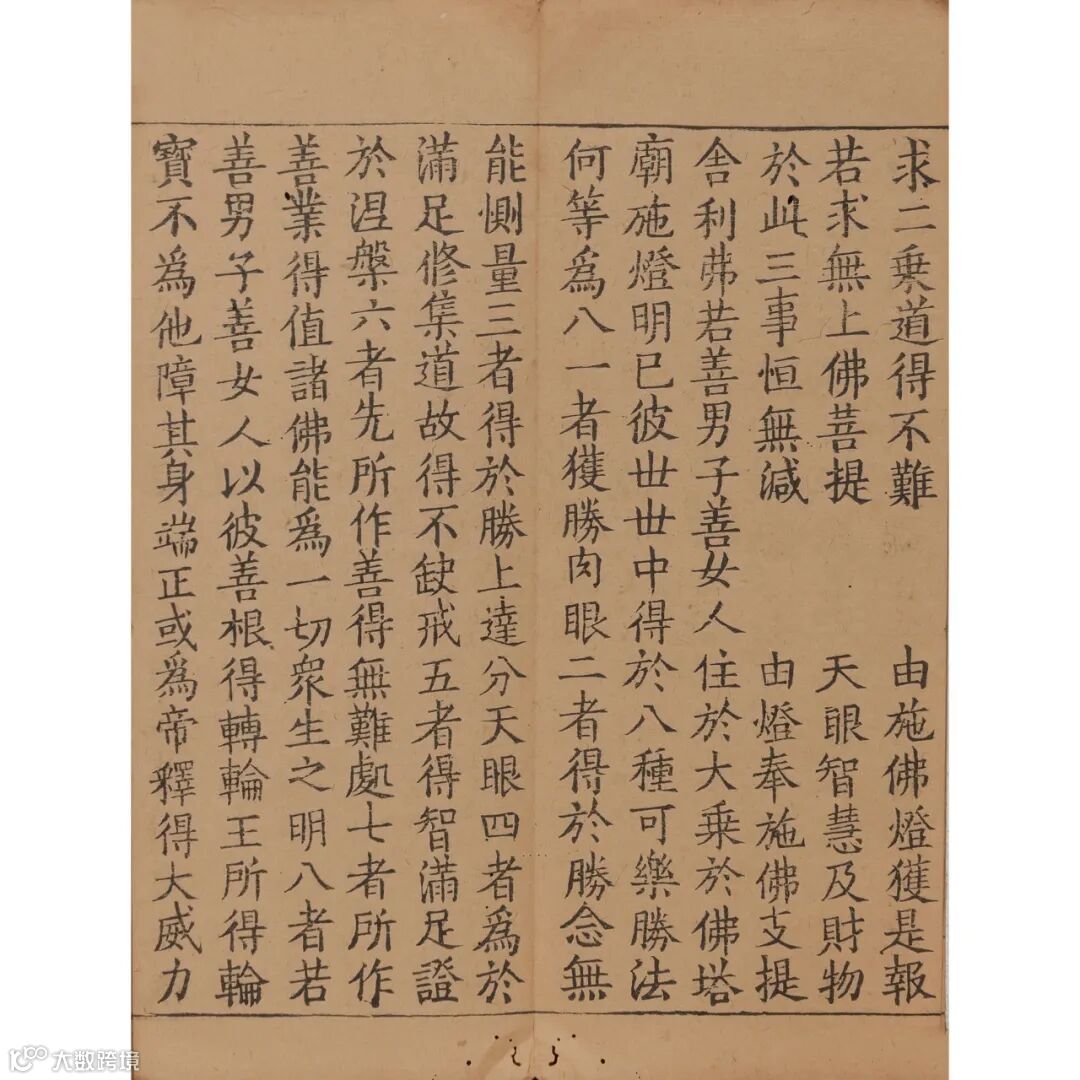 求二乗道得不難　由施佛燈獲是報
若求無上佛菩提　天眼智慧及財物
於此三事恒無減　由燈奉施佛支提
舍利弗若善男子善女人住於大乗於佛塔
廟施燈明已彼丗丗中得於八種可樂勝法
何等爲八一者獲勝肉眼二者得於勝念無
能惻量三者得於勝上達分天眼四者爲於
滿足修集道故得不缺戒五者得智滿足證
於涅槃六者先所作善得無難處七者所作
善業得值諸佛能爲一切衆生之明八者若
善男子善女人以彼善根得轉輪王所得輪
寶不爲他障其身端正或爲帝釋得大威力
大数跨境